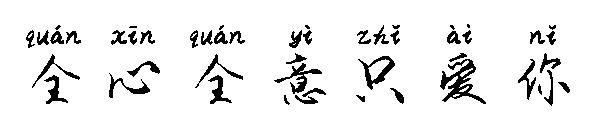 quán xīn quán yì zhǐ ài nǐ
全心全意只爱你